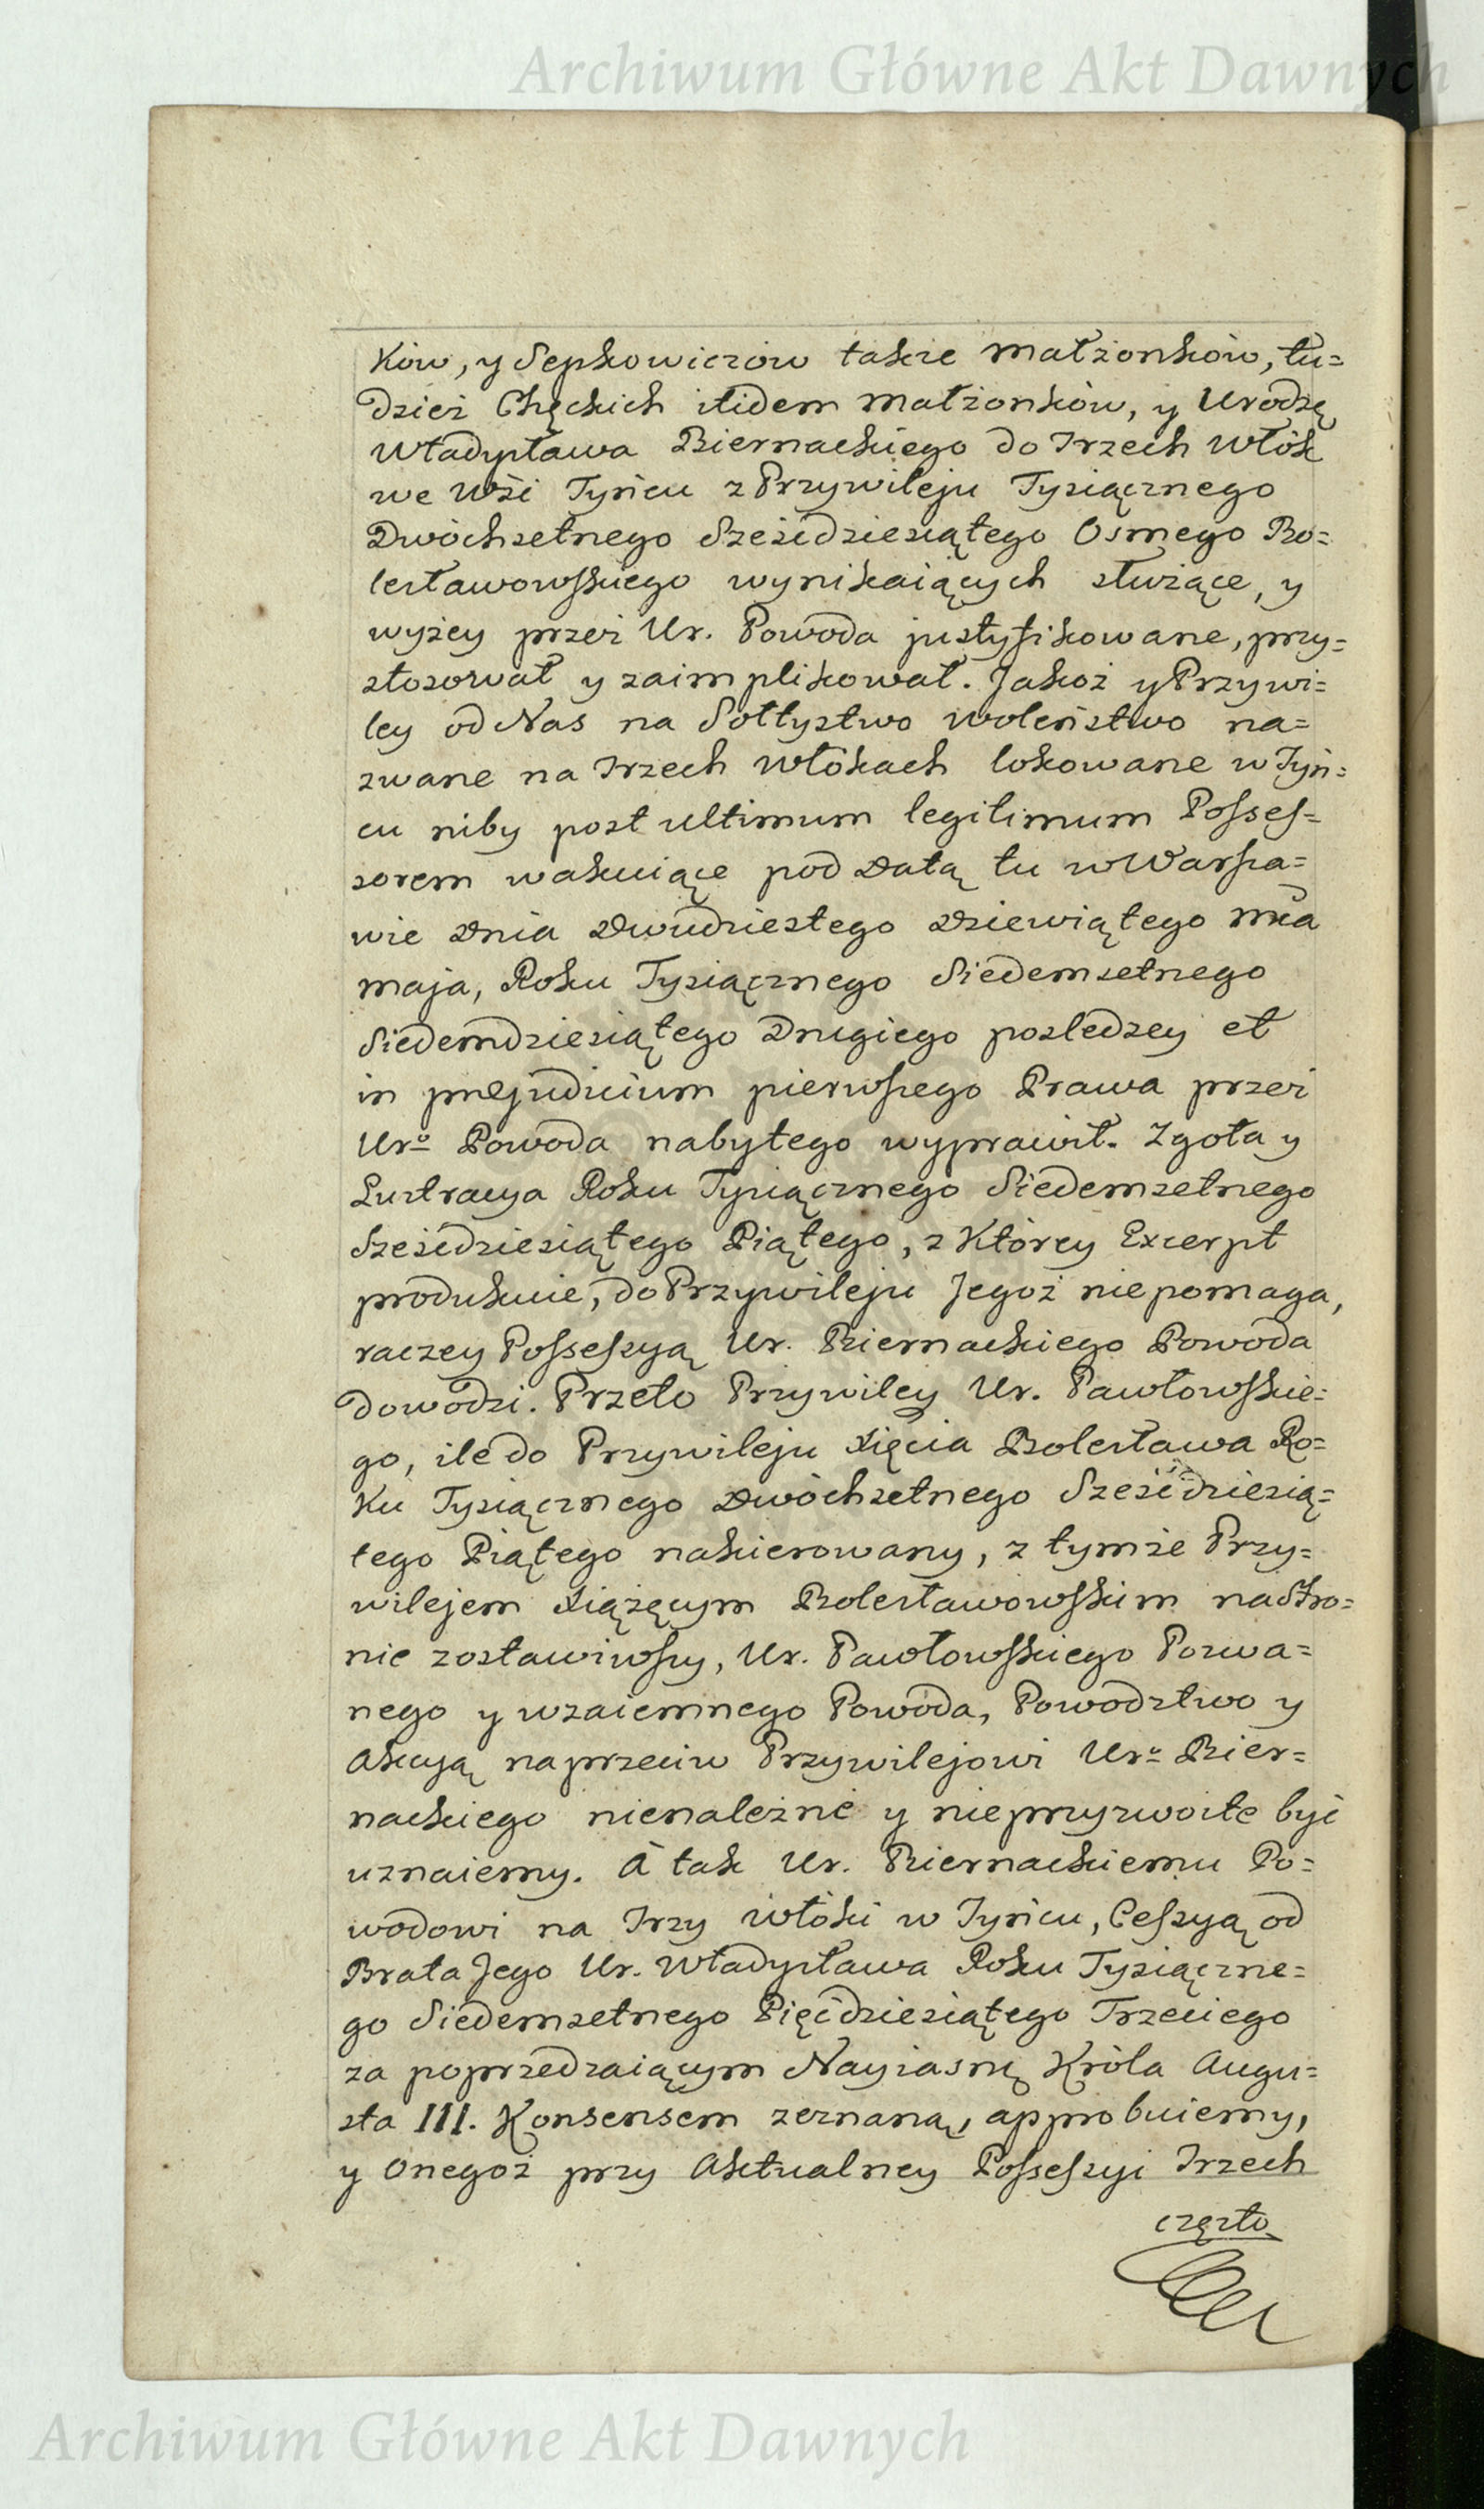 Archiwum Główne Akt Dawnych
ków, y Sepkowiczow także Małżonków, tu=
dzież Chęckich itidem Małżonków, y Urodzę
Władysława Biernackiego do Trzech Włók
we Wsi Tyńcu z Przywileju Tysiącznego
Dwóchsetnego Sześćdziesiątego Osmego Bo=
lesławowskiego wynikaiących służące, y
wyżey przez Ur. Powoda justyfikowane, przy=
stosował y zaimplikował. Jakoż y Przywi=
ley od Nas na Sołtystwo Woleństwo na=
zwane na Trzech Włókach lokowane w Tyń=
cu niby post ultimum legitimum Posses=
sorem wakuiące pod Datą tu w Warsza=
wie Dnia Dwudziestego Dziewiątego Mca
Maja, Roku Tysiącznego Siedemsetnego
Siedemdziesiątego Drugiego posledzey et
in præjudicium pierwszego Prawa przez
Uro Powoda nabytego wyprawił. Zgoła y
Lustracya Roku Tysiącznego Siedemsetnego
Sześćdziesiątego Piątego, z Którey Excerpt
produkuie, do Przywileju Jegoż nie pomaga,
raczey Possessyą Ur. Biernackiego Powoda
dowodzi. Przeto Przywiley Ur. Pawłowskie=
go, ile do Przywileju Xięcia Bolesława Ro=
ku Tysiącznego Dwóchsetnego Sześćdziesią=
tego Piątego nakierowany, z tymże Przy=
wilejem Xiążęcym Bolesławowskim na Stro=
nie zostawiwszy, Ur. Pawłowskiego Pozwa=
nego y wzaiemnego Powoda, Powodztwo y
Akcyą naprzeciw Przywilejowi Uro Bier=
nackiego nienależne y nieprzyzwoite być
uznaiemy. A tak Ur. Biernackiemu Po=
wodowi na Trzy Włóki w Tyńcu, Cessyą od
Brata Jego Ur. Władysława Roku Tysiączne=
go Siedemsetnego Pięćdziesiątego Trzeciego
za poprzedzaiącym Nayiasnę Króla Augu=
sta III. Konsensem zeznaną, approbuiemy,
y Onegoż przy Aktualney Possessyi Trzech
często
Archiwum Główne Akt Dawnych